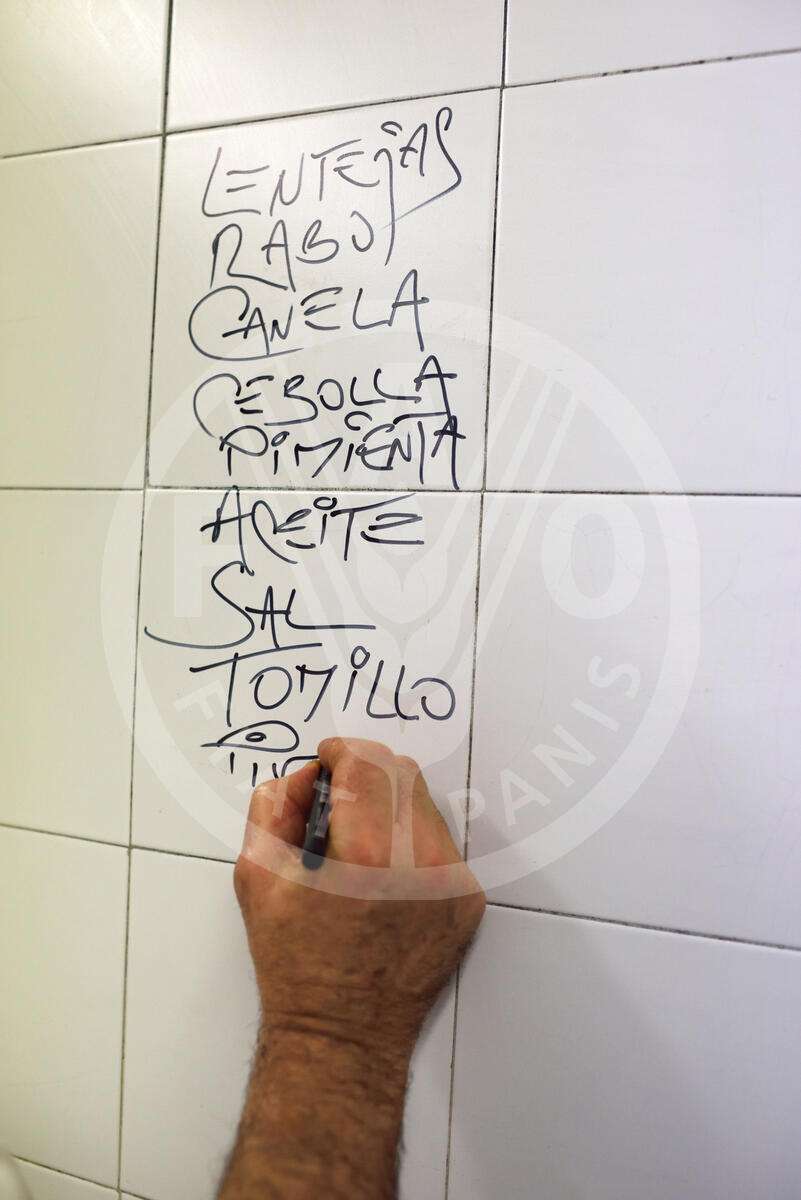 LENTEjAS
RABO
CANELA
CEBOLLA
PiMiENTA
ACEiTE
SAL
TOMiLLO
FAO
FIAT PANIS